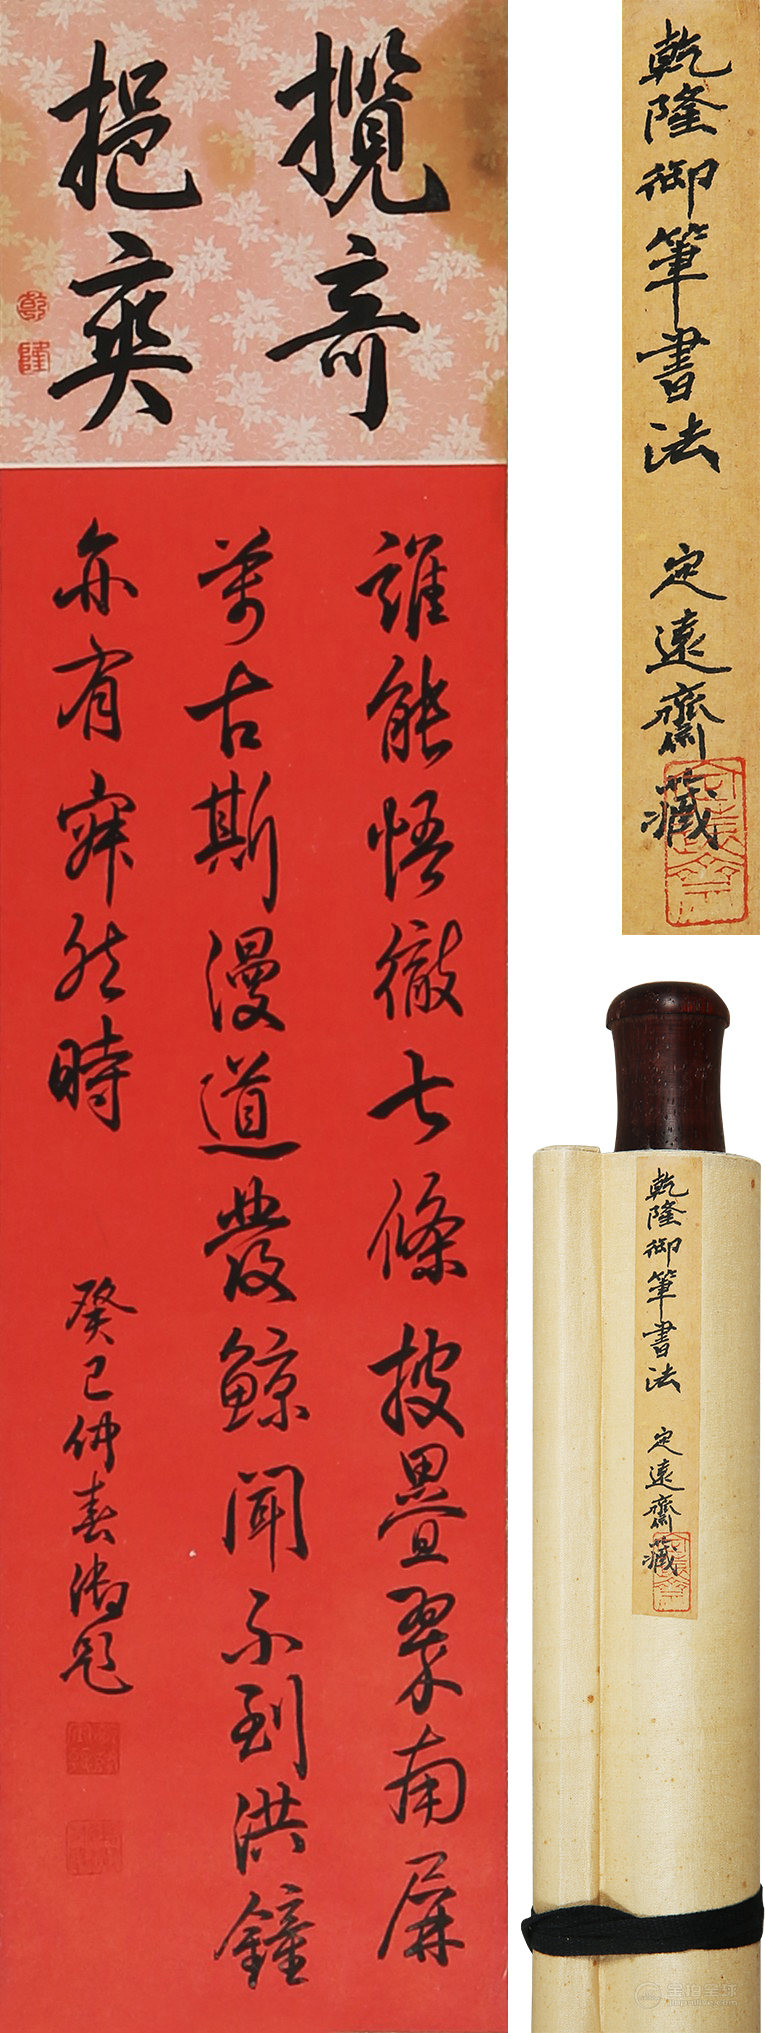 攬奇
挹爽
乾隆
誰能悟徹七條披疊翠南屏
萬古斯漫道發鯨聞不到洪鐘
亦有寂然時 癸巳仲春御題
乾隆御筆書法 定遠齋藏
乾隆御筆書法 定遠齋藏